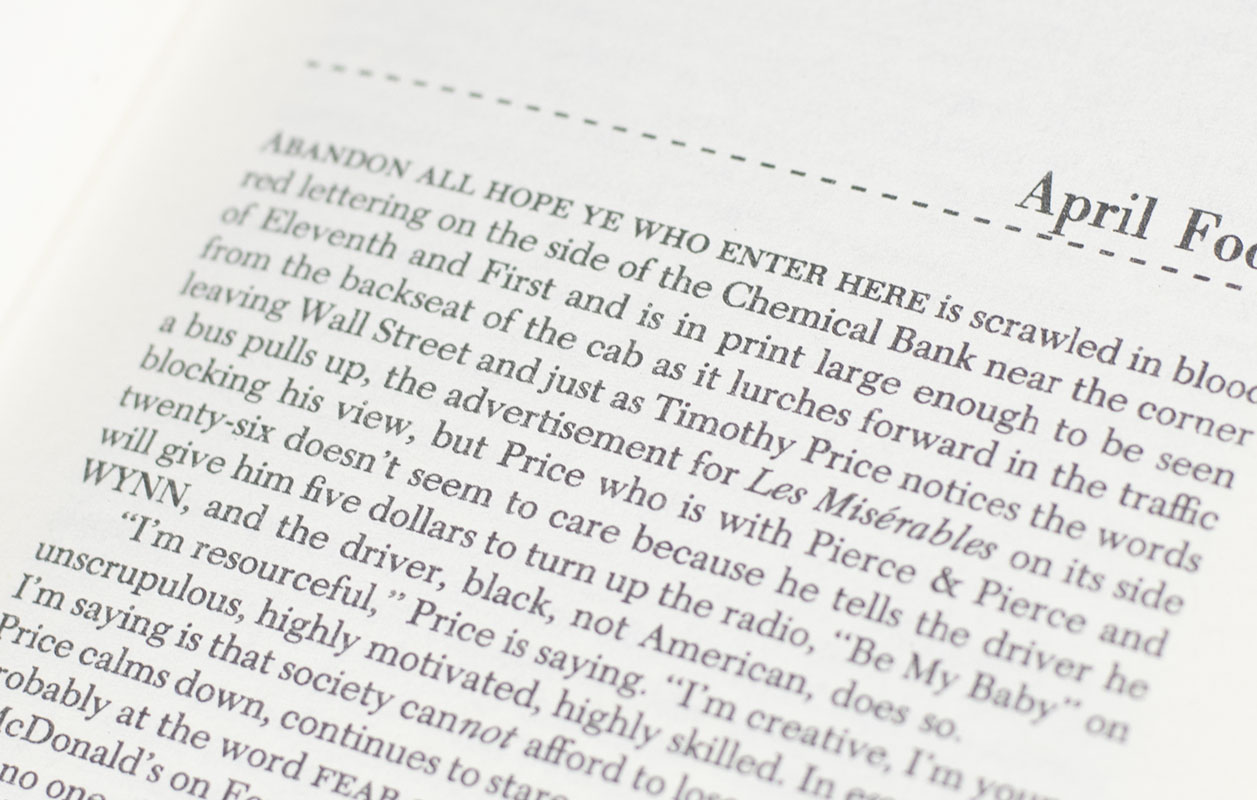 April
ABANDON ALL HOPE YE WHO ENTER HERE is scrawled in
red lettering on the side of the Chemical Bank near the corner
of Eleventh and First and is in print large enough to be seen
from the backseat of the cab as it lurches forward in the traffic
leaving Wall Street and just as Timothy Price notices the words
a bus pulls up, the advertisement for Les Misérables on its side
blocking his view, but Price who is with Pierce & Pierce and
twenty-six doesn't seem to care because he tells the driver he
will give him five dollars to turn up the radio, “Be My Baby” on
WYNN, and the driver, black, not American, does so.
“I'm resourceful,” Price is saying. “I'm creative, I'm
unscrupulous, highly motivated, highly skilled. In
I'm saying is that society cannot afford to
Price calms down, continues to
at the word FEAR
on
no one